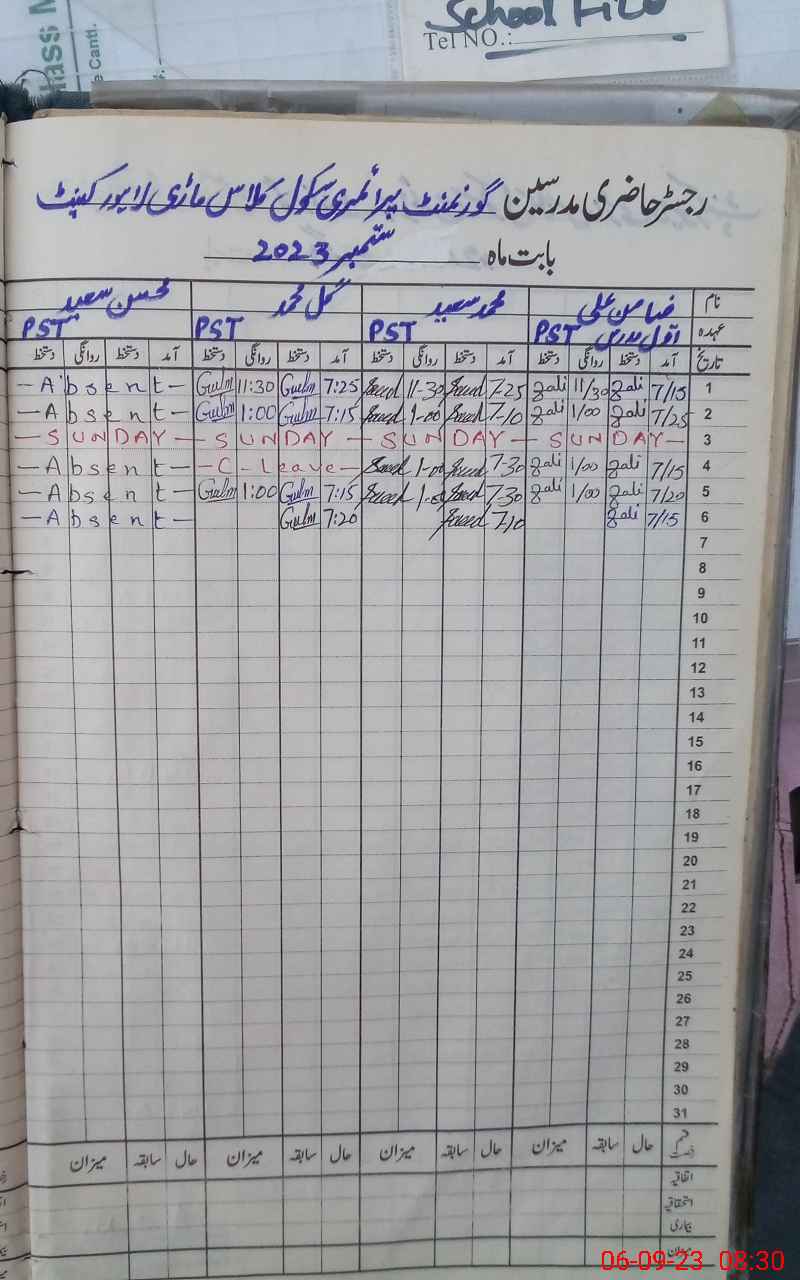 School File
Tel NO.:
رجسٹر حاضری مدرسین گورنمنٹ پرائمری سکول کلاس ماڑی لاہور کینٹ
بابت ماہ ستمبر 2023
نام ضامن علی محمد سعید گل محمد محسن سعید
عہدہ اول مدرس PST PST PST PST
تاریخ آمد دستخط روانگی دستخط آمد دستخط روانگی دستخط آمد دستخط روانگی دستخط آمد دستخط روانگی دستخط
1 7/15 gali 11/30 gali 7-25 Saeed 11-30 Saeed 7:25 Gulm 11:30 Gulm - Absent -
2 7/25 gali 1/00 gali 7-10 Saeed 1-00 Saeed 7:15 Gulm 1:00 Gulm - Absent -
3 - SUNDAY - SUNDAY - SUNDAY - SUNDAY -
4 7/15 gali 1/00 gali 7-30 Saeed 1-00 Saeed - C - Leave - - Absent -
5 7/20 gali 1/00 gali 7-30 Saeed 1-00 Saeed 7:15 Gulm 1:00 Gulm - Absent -
6 7/15 gali 7-10 Saeed 7:20 Gulm - Absent -
7
8
9
10
11
12
13
14
15
16
17
18
19
20
21
22
23
24
25
26
27
28
29
30
31
قسم رخصت حال سابقہ میزان حال سابقہ میزان حال سابقہ میزان حال سابقہ میزان
اتفاقیہ
استحقاقیہ
بیماری
میزان
06-09-23 08:30